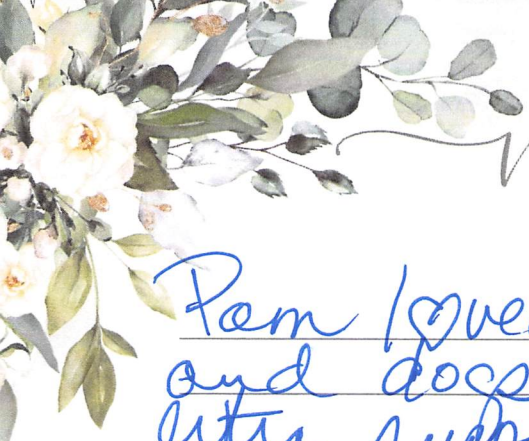 Pam love
and dogs